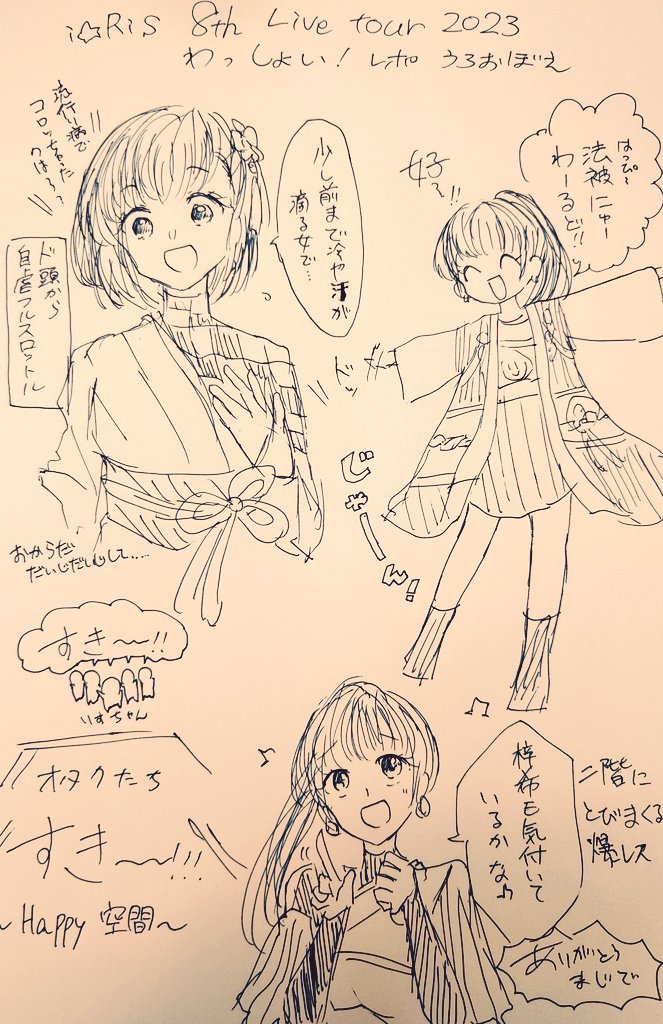 i☆Ris 8th Live tour 2023
わっしょい! レポ うろおぼえ
流行り病で
コロッちゃった
クはろ?
少し前まで冷や汗が
滴る女で…
ド頭から
自虐フルスロットル
ドッ
おからだ
だいじだいじして……
好〜!!
はっぴ〜
法被にゅー
わーるど!!
じゃーん!
すき〜!!
いすちゃん
オタクたち
すき〜!!!
~Happy 空間~
梓希も気付いて
いるかな♪
二階に
とびまくる
爆レス
ありがとう
まじで